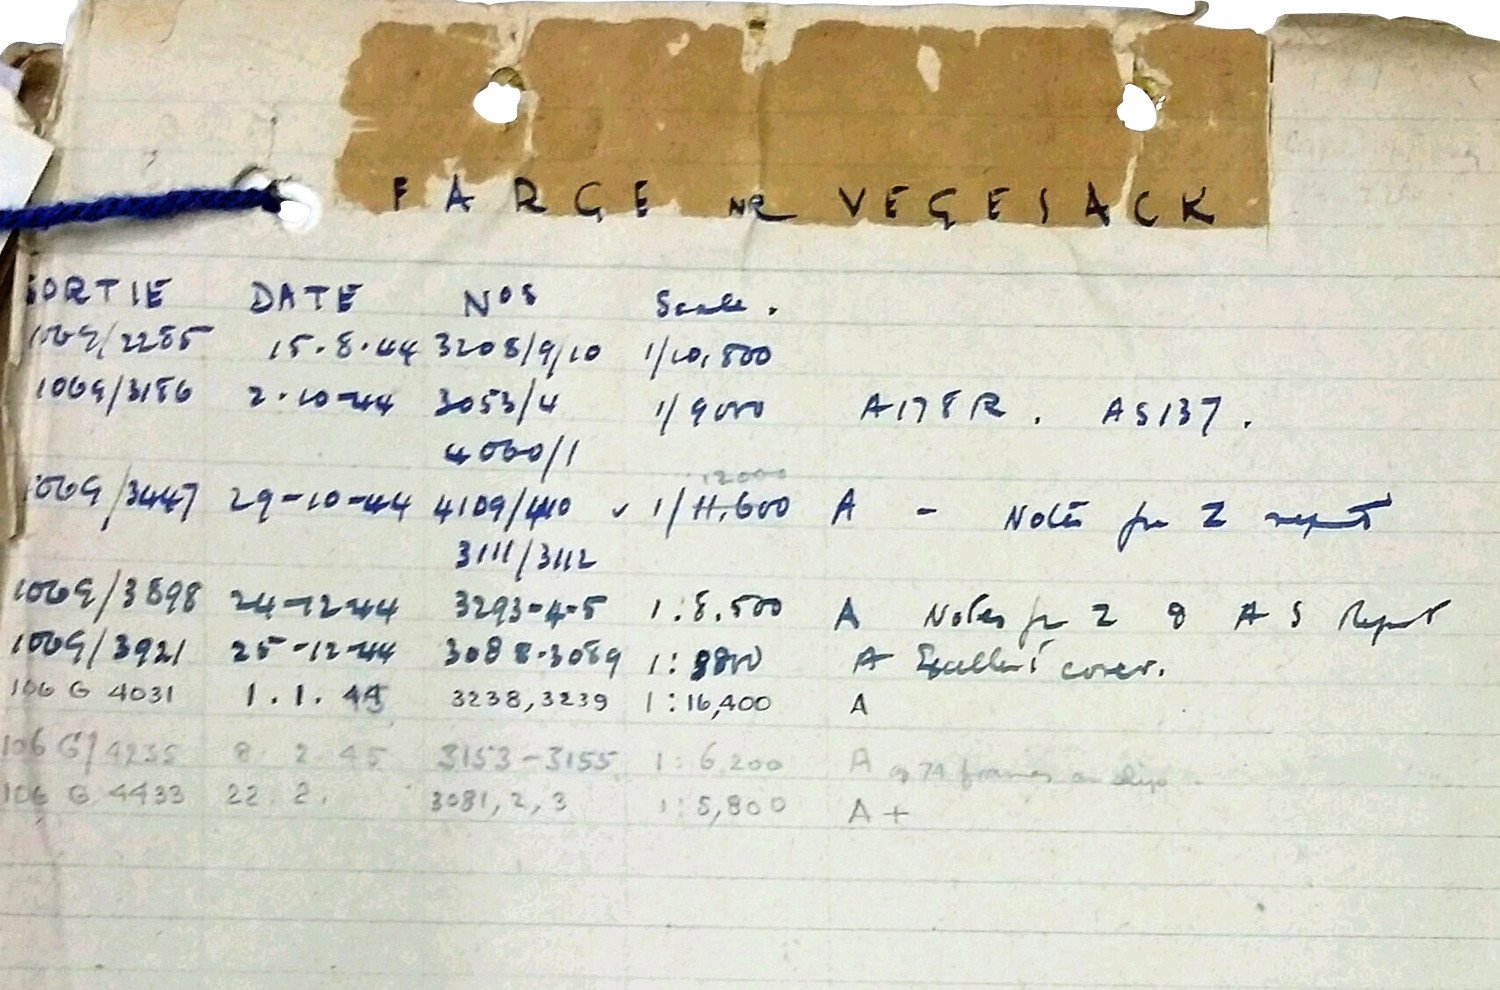 FARGE NR VEGESACK
SORTIE DATE Nos Scale.
106G/2285 15.8.44 3208/9/10 1/10,800
106G/3186 2.10-44 3053/4 1/9000 A178R. AS137.
4060/1
12000
106G/3447 29-10-44 4109/4110 ✓ 1/11,600 A - Notes for Z report
3111/3112
106G/3898 24-12-44 3293-4-5 1:8,500 A Notes for Z & AS Report
106G/3921 25-12-44 3088-3089 1:8800 A Excellent cover.
106 G 4031 1.1.45 3238,3239 1:16,400 A
106 G/4235 8.2.45 3153-3155 1:6,200 A 74 frames
106 G 4433 22.2. 3081,2,3 1:5,800 A+